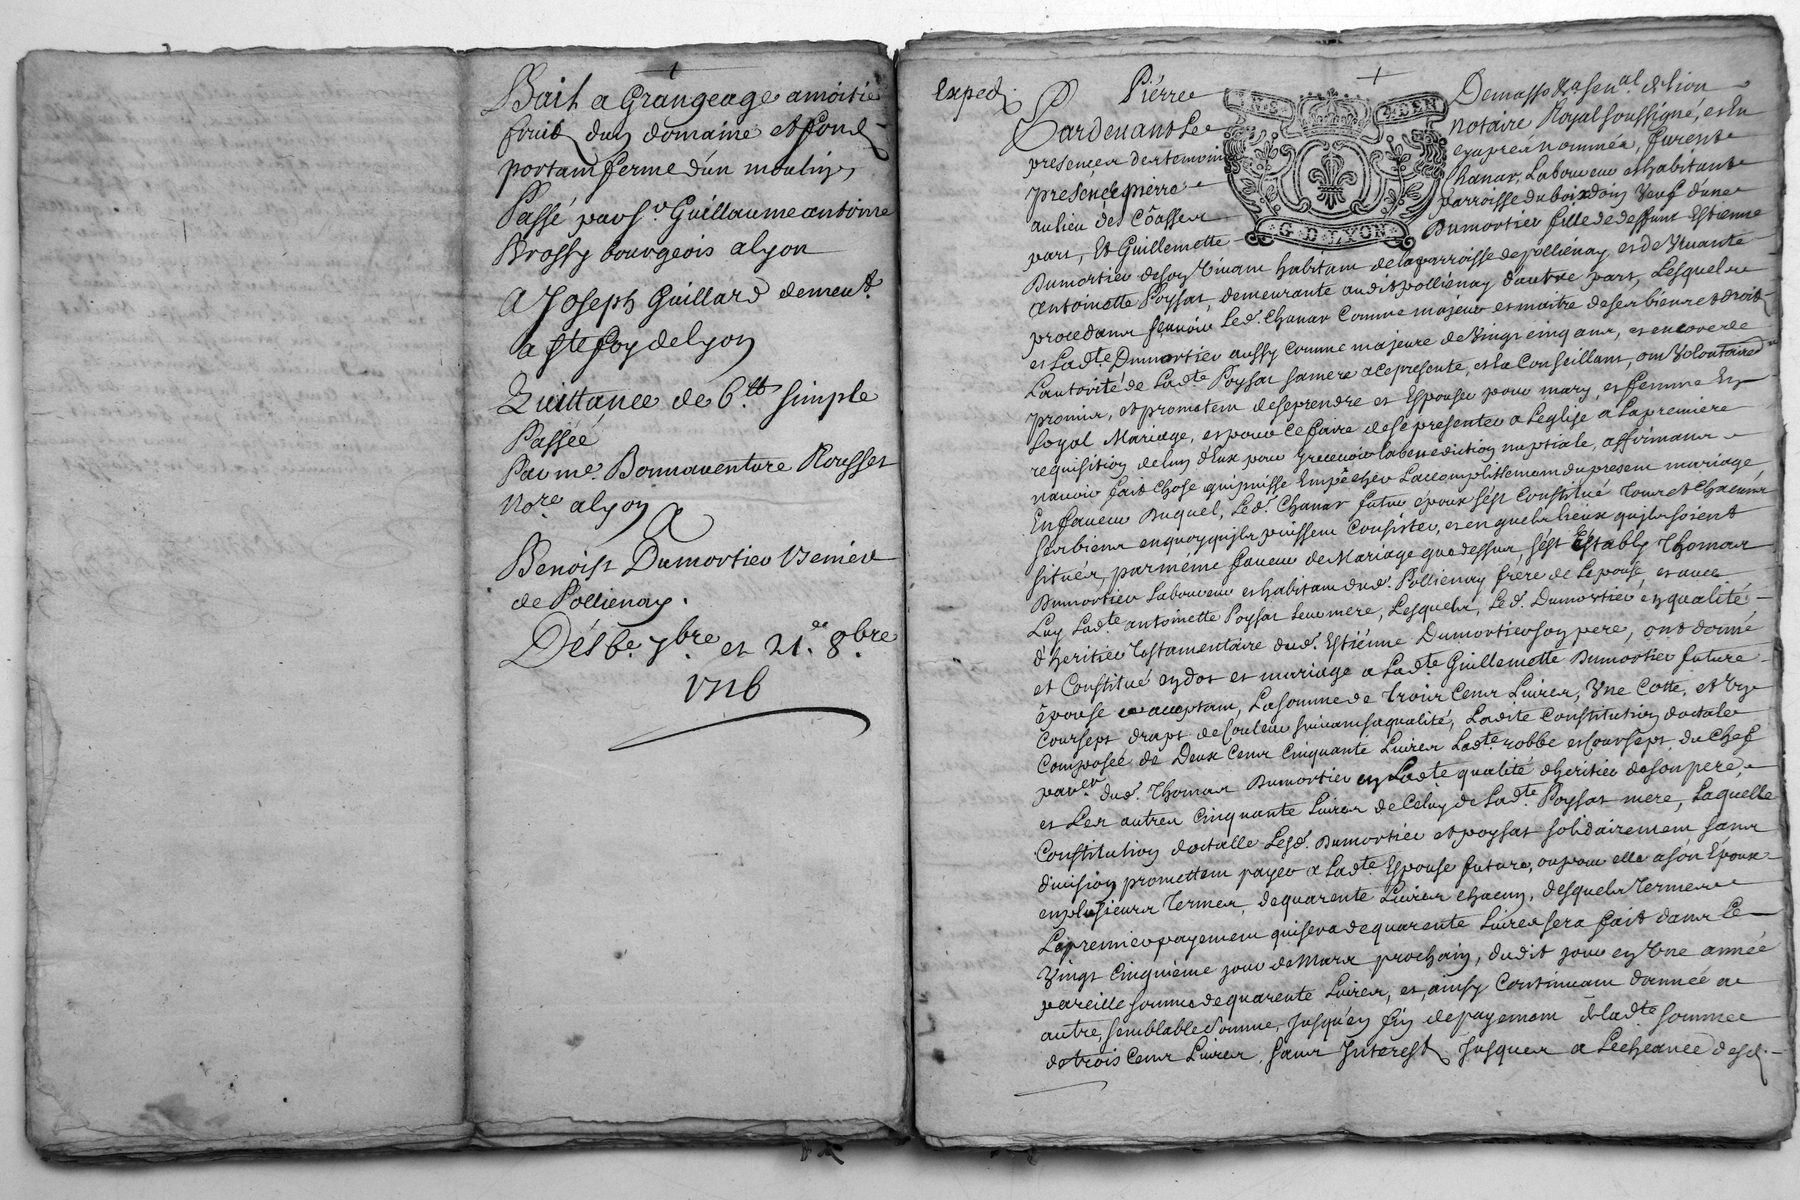 Bail a Grangeage a moitié
fruit dun domaine et fond
portant ferme d'un moulin,
Passé par Sr Guillaume antoine
Brossy bourgeois a lyon
A Joseph Guillard demeurt
a ste foy de lyon
Quittance de 6tt simple
Passée
Par me. Bonnaventure Rousset
Nore a lyon
A
Benoist Dumortier Vernier
de Pollienay.
Dés 6e. 7bre et 21e. 8bre
1716
Exped.
Pierre
Pardevant Le
presences des temoins
presence pierre
au lieu des Côasses
part, Et Guillemette
GEN DE LYON
G D LYON
De masso En senal de lion
notaire Royal soussigné, et En
cy apres nommés, furent
Chanar, Laboureur et habitant
parroisse du bois doin Veuf d'une
Dumortier fille de deffunt Estienne
Dumortier de son Vivant habitant de la parroisse de pollienay et de Vivante
Antoinette Poysat, demeurante audit pollienay d'autre part, Lesquels
procedans sçavoir Led. Chanar Comme majeur et maitre de ses biens et droits
et Ladte Dumortier aussy comme majeure de Vingt cinq ans, et encore de
L'autorité de Ladte Poysat sa mere a ce presente, et la Conseillant, ont Volontairemt
promis, et promettent de se prendre et Epouser pour mary, et femme En
Loyal Mariage, et pour ce faire de se presenter a L'eglise a La premiere
requisition de lun d'Eux pour y recevoir la benediction nuptiale, affirmans
navoir fait chose qui puisse Empêcher L'accomplissement du present mariage
En faveur Duquel, Led. Chanar futur époux s'est Constitué Tous et Chacuns
ses biens en quoy qu'ils puissent Consister, et en quels lieux qu'ils soient
situés, par même faveur de Mariage que dessus, s'est Estably Thomas
Dumortier Laboureur et habitant dud. Pollienay frere de L'epouse, et avec
Luy Ladte antoinette Poysat leur mere, Lesquels, Led. Dumortier en qualité
d'heritier Testamentaire dud. Estienne Dumortier son pere, ont donné
et Constitué en dot et mariage a Ladte Guillemette Dumortier future
épouse acceptant, La somme de trois Cens Livres, Une Cotte, et Un
Courset drapt de Couleur suivant sa qualité, Ladite Constitution dotale
Composée de Deux Cens Cinquante Livres Ladte robbe et Courset, du Chef
dud. Thomas Dumortier en Ladte qualité d'heritier de son pere,
et Les autres Cinquante Livres de Celuy de Ladte Poysat mere, Laquelle
Constitution dotalle Lesd. Dumortier et poysat solidairement sans
division promettent payer a Ladte Epouse future, ou pour elle a son Epoux
en plusieurs Termes, de quarente Livres chacun, desquels Termes
Le premier payement qui sera de quarente Livres sera fait dans Le
Vingt Cinquieme jour de Mars prochain, dudit jour en Une année
pareille somme de quarente Livres, et, ainsy Continuant d'année en
autre, semblable somme, Jusqu'en fin de payement de ladte somme
de trois Cens Livres, sans Interest, Jusques a L'echeance desd.